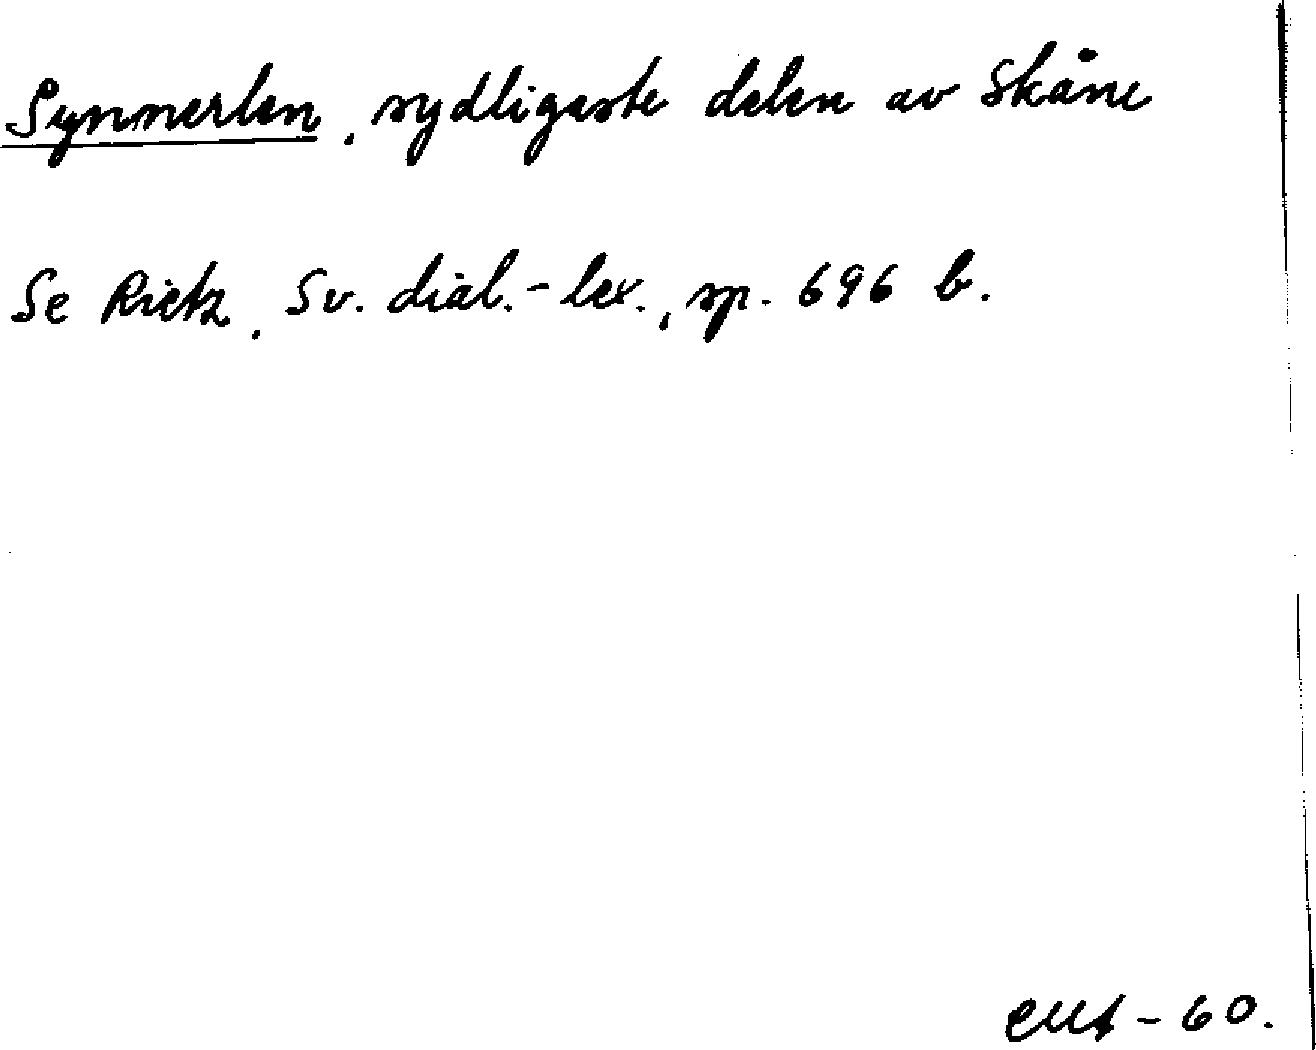 Synnerlen, sydligaste delen av Skåne
Se Rietz, Sv. dial.-lex., sp. 696 b.
-60.